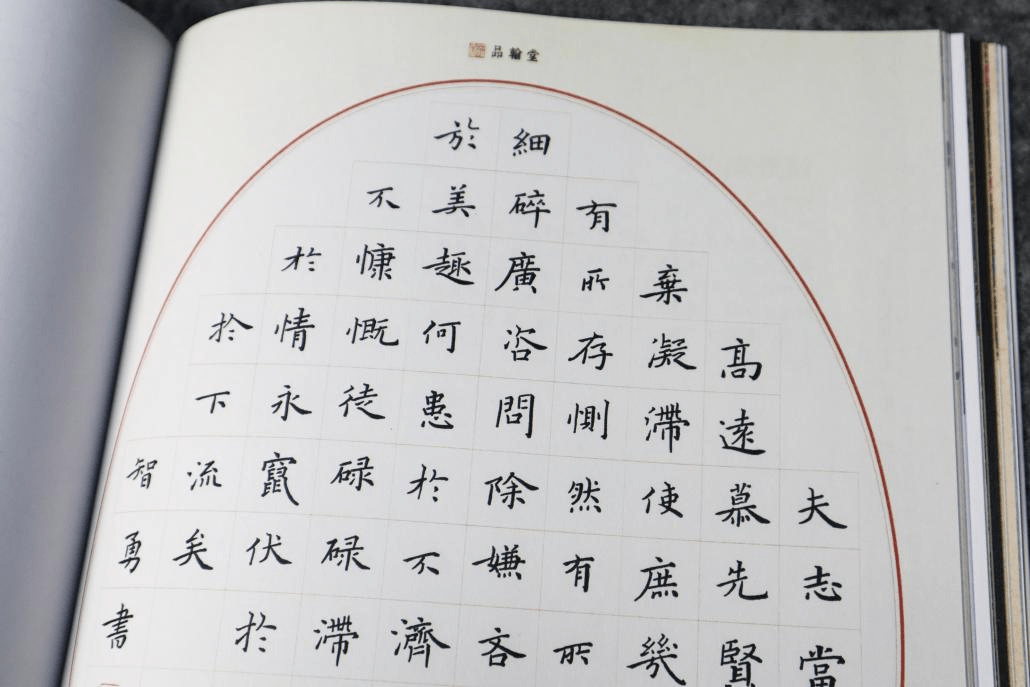 品翰堂
夫志當
高遠慕先賢
棄凝滯使庶幾
有所存惻然有所
細碎廣咨問除嫌吝
於美趣何患於不濟
不慷慨徒碌碌滯
於情永竄伏於
於下流矣
智勇書